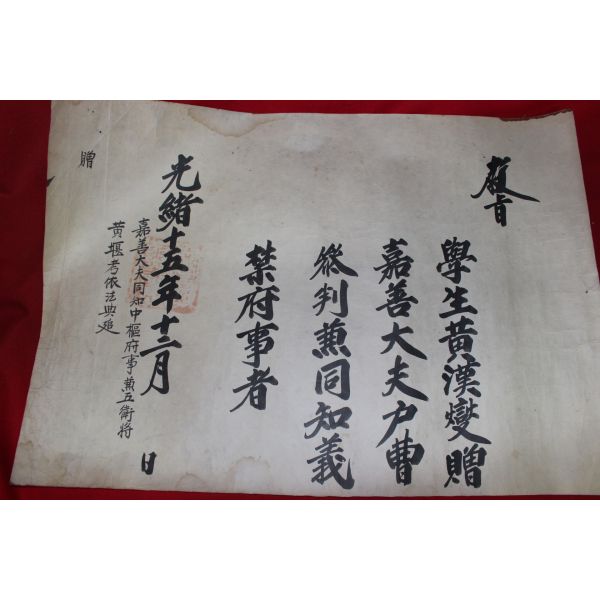 敎旨
學生黃漢燮贈
嘉善大夫戶曹
叅判兼同知義
禁府事者
光緖十五年十二月 日
嘉善大夫同知中樞府事兼五衛將
黃堰考依法典追
贈